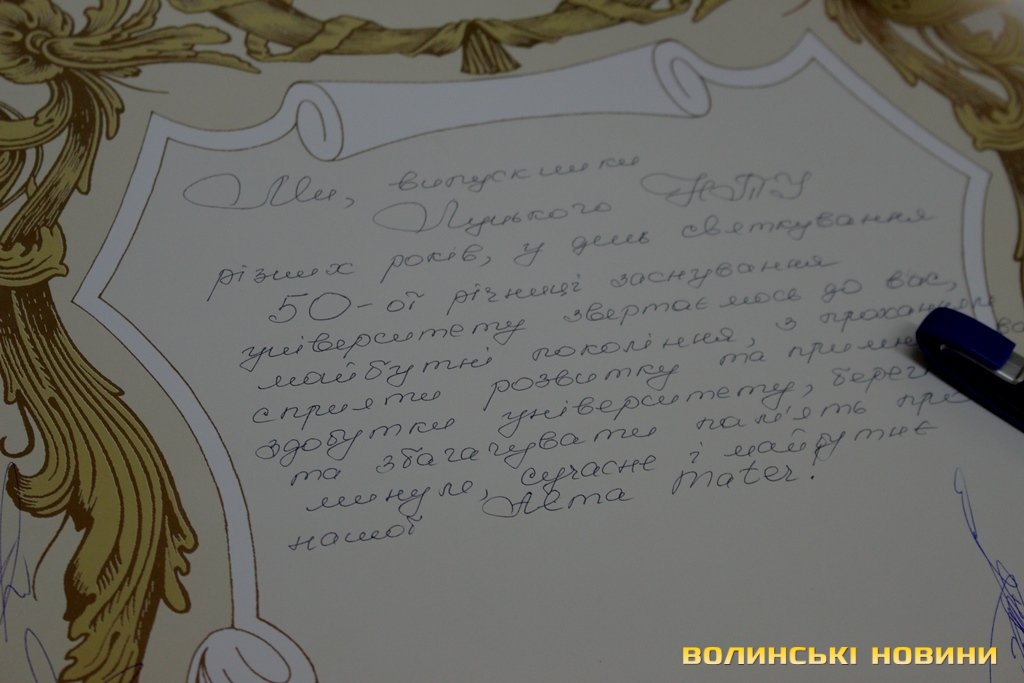 Ми, випускники
Луцького НТУ
різних років, у день святкування
50-ої річниці заснування
університету звертаємось до вас,
майбутні поколіня, з проханням
сприяти розвитку та
здобутки університету,
та збагачувати пам'ять про
минуле, сучасне і майбутнє
нашої Alma mater!
ВОЛИНСЬКІ НОВИНИ